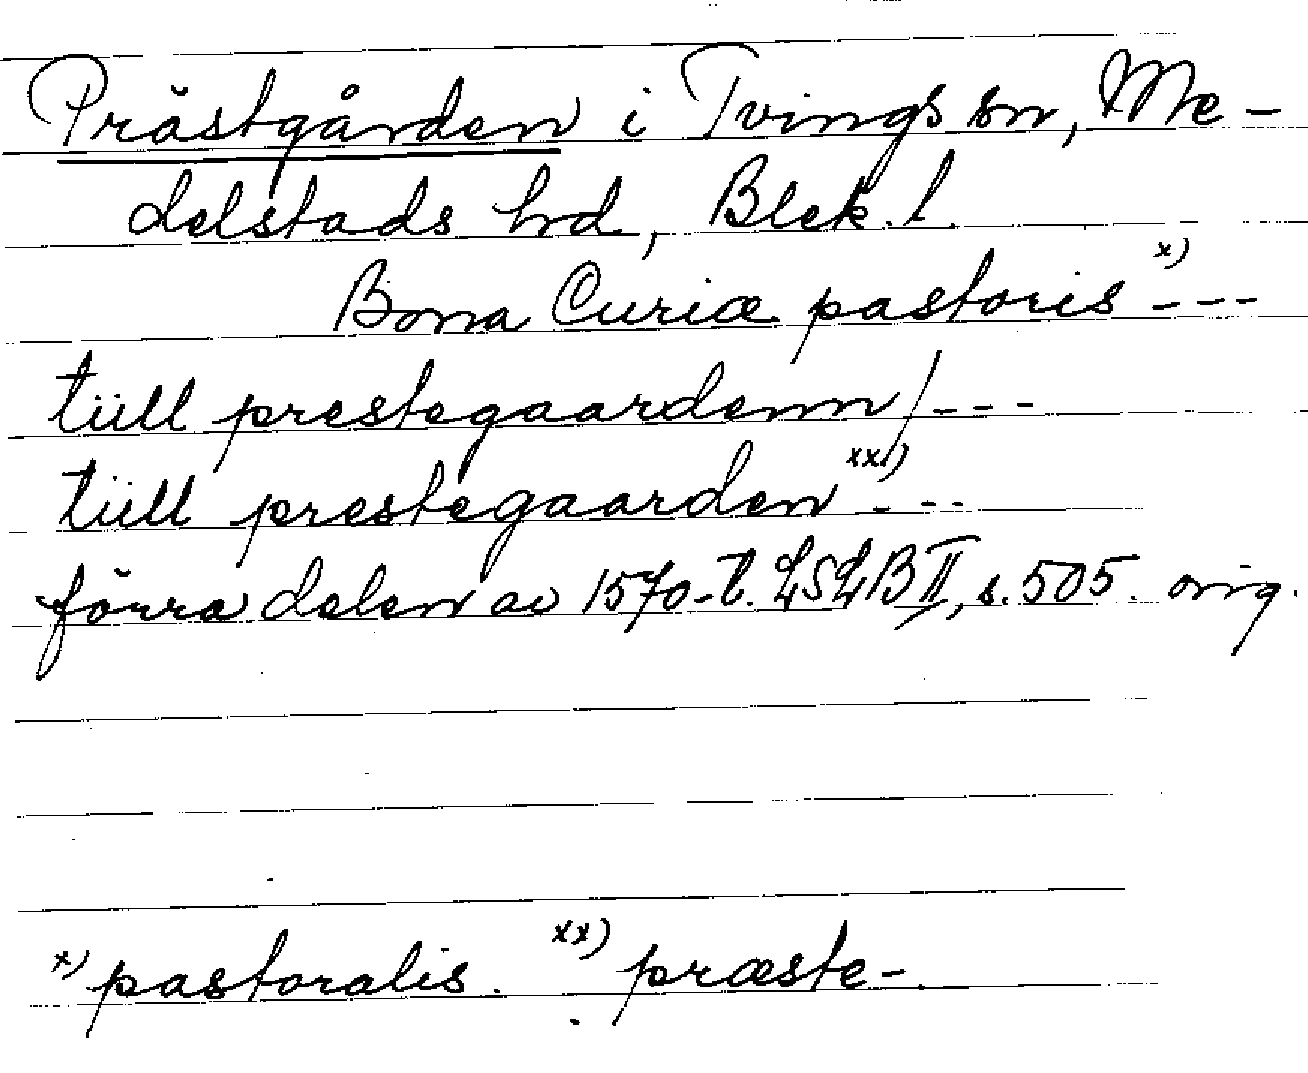 Prästgården i Tvings sn, Me-
delstads hd, Blek. l.
Bona Curiæ pastoris x) ---
tüll prestegaardenn / ---
tüll prestegaarden xx) ---
förra delen av 1570-t. LSLB II, s. 505. orig.
x) pastoralis. xx) præste-